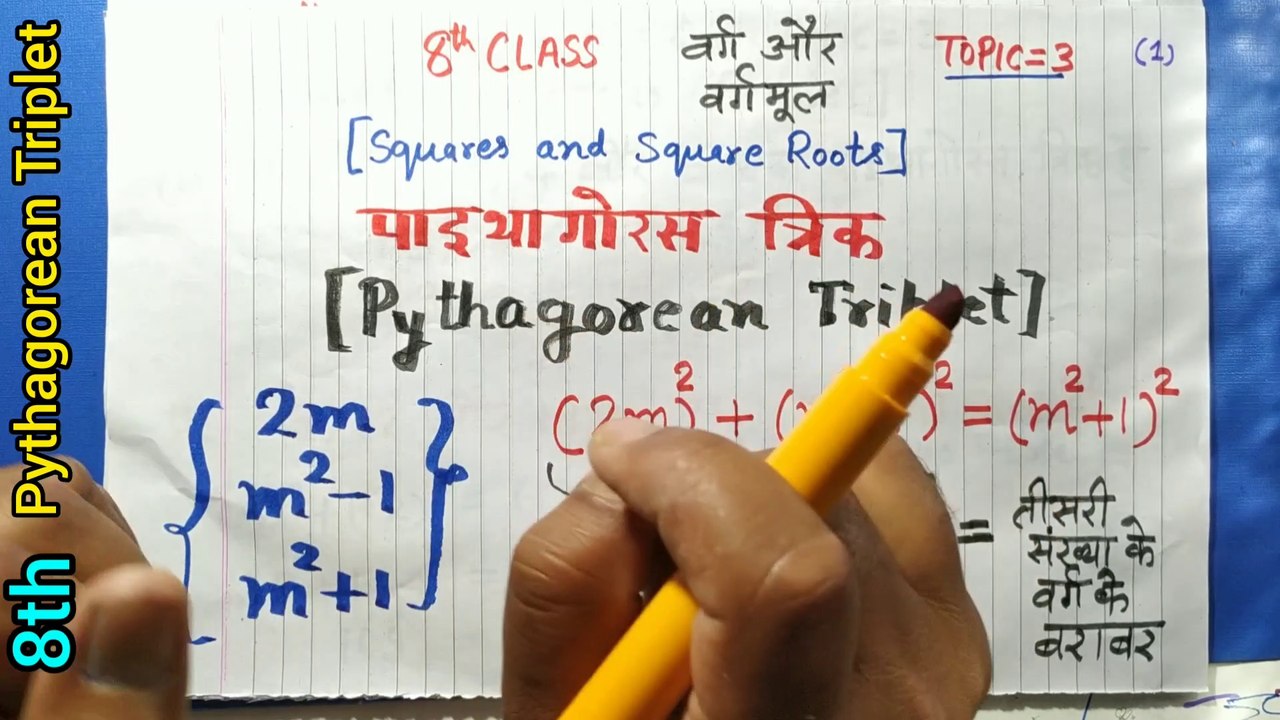 8th Pythagorean Triplet
8th CLASS
वर्ग और
वर्गमूल
TOPIC=3
(1)
[Squares and Square Roots]
पाइथागोरस त्रिक
[Pythagorean
2m
m²-1
m²+1
(2m)² + ( )² = (m²+1)²
= तीसरी
संख्या के
वर्ग के
बराबर